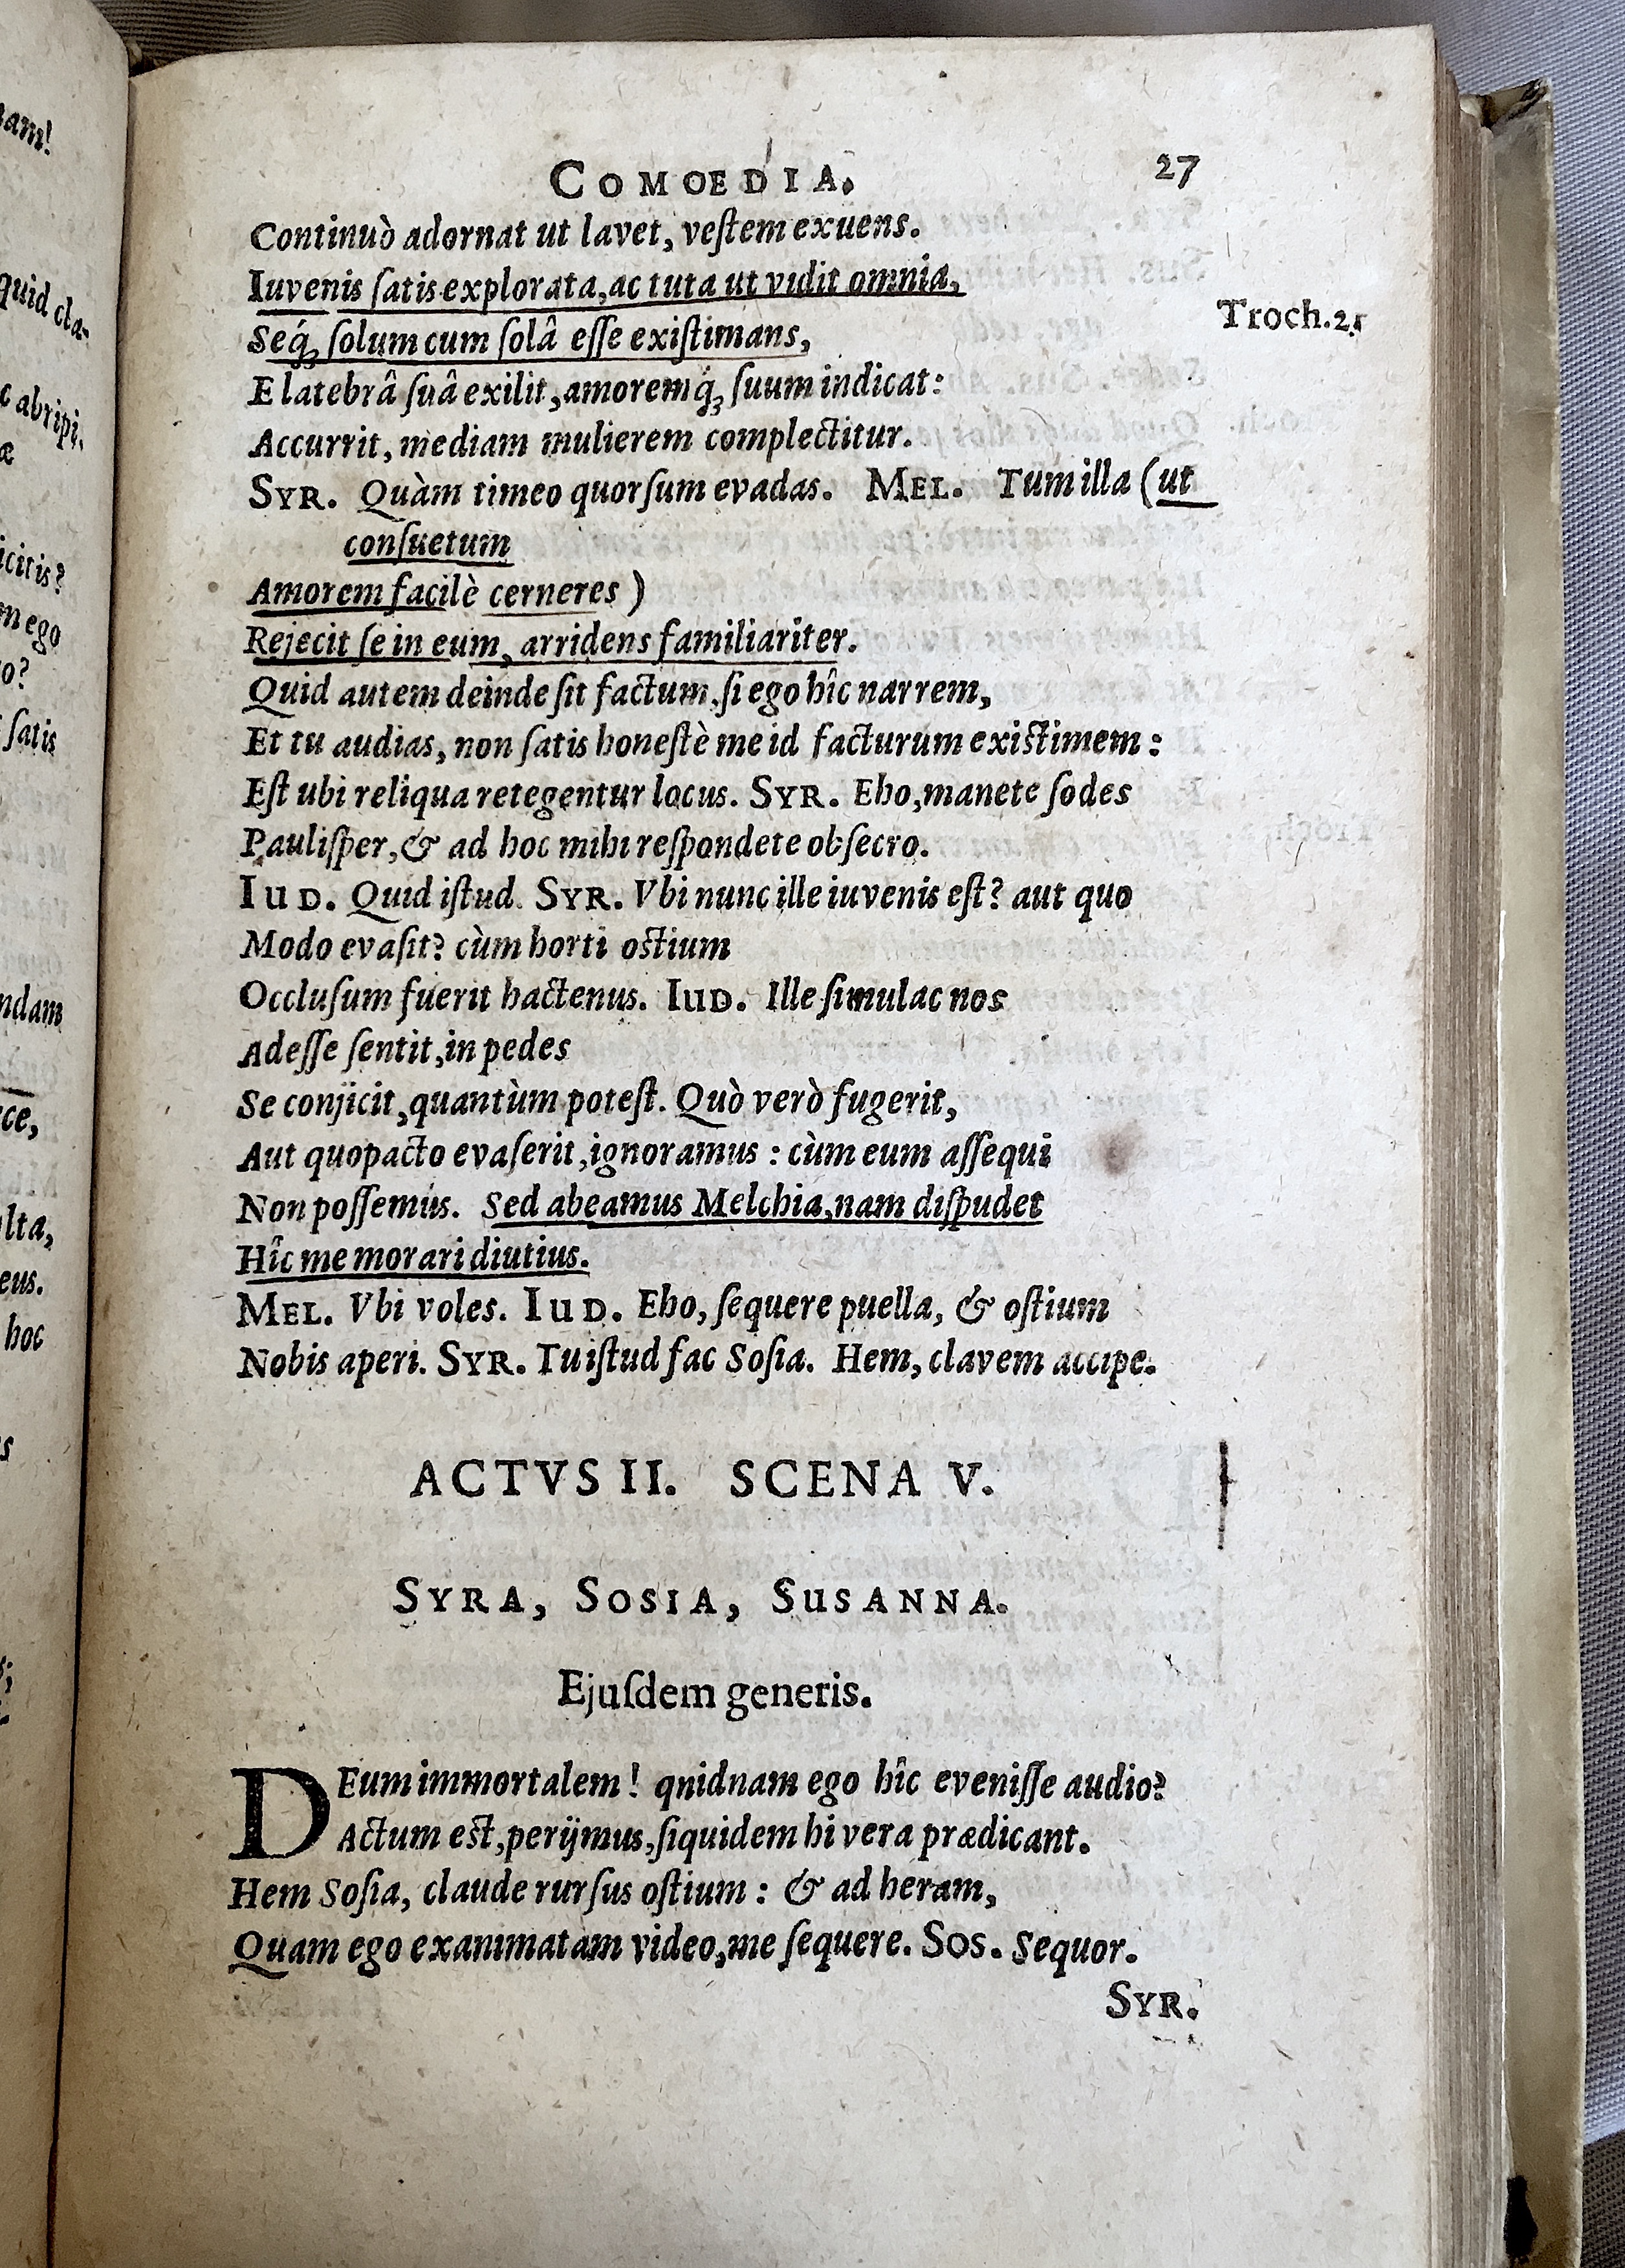 am!
quid cla-
c abripi-
æ
icitis?
m ego
o?
ſatis
ndam
ce,
lta,
eus.
hoc
s
COMOEDIA. 27
Continuò adornat ut lavet, veſtem exuens.
Iuvenis ſatis explorata, ac tuta ut vidit omnia,
Seq́; ſolum cum ſolâ eſſe exiſtimans, Troch. 2.
E latebrâ ſuâ exilit, amoremq́; ſuum indicat:
Accurrit, mediam mulierem complectitur.
SYR. Quàm timeo quorſum evadas. MEL. Tum illa (ut
conſuetum
Amorem facilè cerneres)
Rejecit ſe in eum, arridens familiariter.
Quid autem deinde ſit factum, ſi ego hîc narrem,
Et tu audias, non ſatis honeſtè me id facturum exiſtimem:
Eſt ubi reliqua retegentur locus. SYR. Eho, manete ſodes
Pauliſper, & ad hoc mihi reſpondete obſecro.
IUD. Quid iſtud. SYR. Vbi nunc ille iuvenis eſt? aut quo
Modo evaſit? cùm horti oſtium
Occluſum fuerit hactenus. IUD. Ille ſimulac nos
Adeſſe ſentit, in pedes
Se conjicit, quantùm poteſt. Quò verò fugerit,
Aut quo pacto evaſerit, ignoramus: cùm eum aſſequi
Non poſſemus. Sed abeamus Melchia, nam diſpudet
Hîc me morari diutius.
MEL. Vbi voles. IUD. Eho, ſequere puella, & oſtium
Nobis aperi. SYR. Tu iſtud fac Soſia. Hem, clavem accipe.
ACTVS II. SCENA V.
SYRA, SOSIA, SUSANNA.
Ejuſdem generis.
DEum immortalem! qnidnam ego hîc eveniſſe audio?
Actum eſt, perijmus, ſiquidem hi vera prædicant.
Hem Soſia, claude rurſus oſtium: & ad heram,
Quam ego exanimatam video, me ſequere. SOS. Sequor.
SYR.